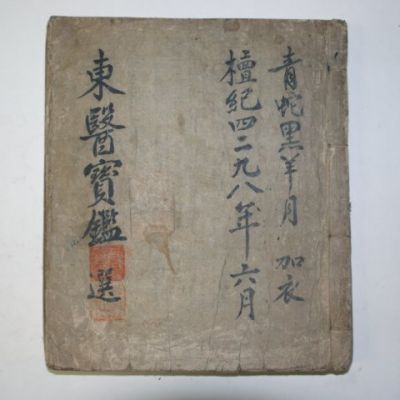 青蛇黑羊月 加衣
檀紀四二九八年 六月
東醫寶鑑 選